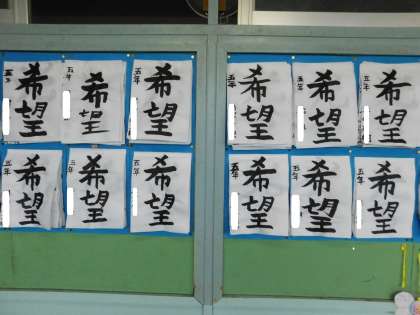 五年 希望
五年 希望
五年 希望
五年 希望
五年 希望
五年 希望
五年 希望
五年 希望
五年 希望
五年 希望
五年 希望
五年 希望